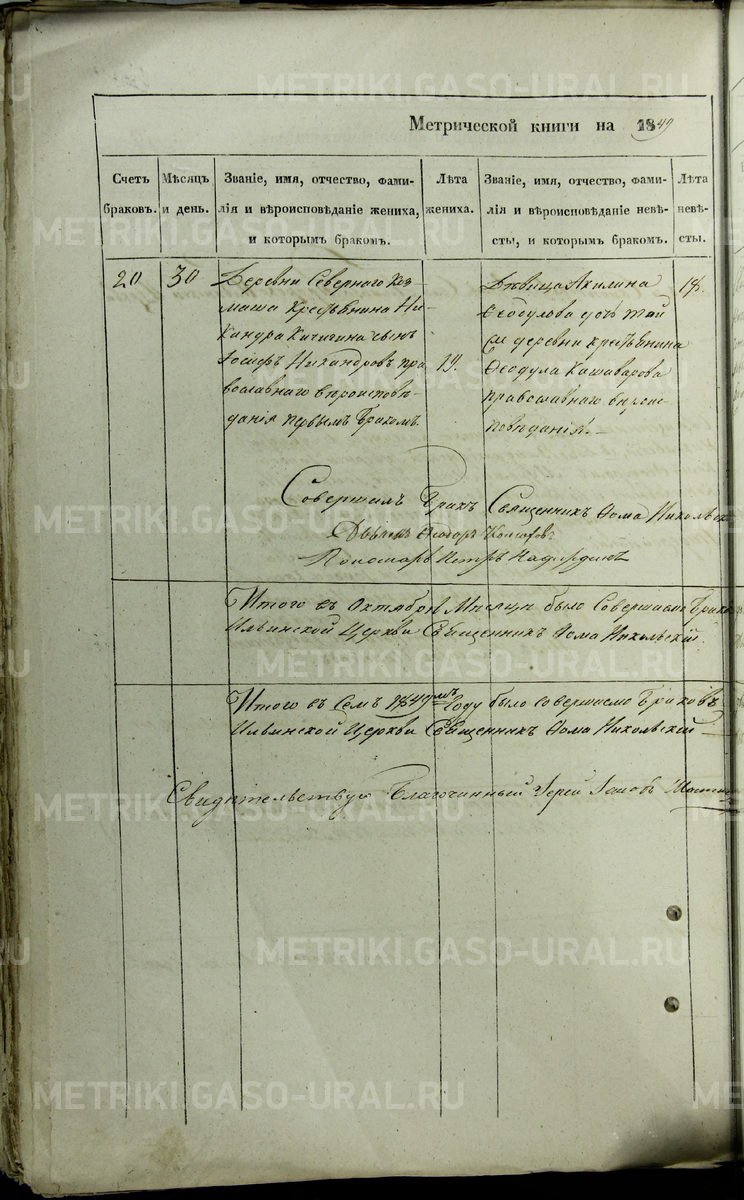 Метрической книги на 1849
Счетъ браковъ.
Мѣсяцъ и день.
Званіе, имя, отчество, фами-
лія и вѣроисповѣданіе жениха,
и которымъ бракомъ.
Лѣта жениха.
Званіе, имя, отчество, фами-
лія и вѣроисповѣданіе невѣ-
сты, и которымъ бракомъ.
Лѣта невѣ-
сты.
20
30
Деревни Севернаго
маша крестьянина Ни-
кандра Кичигина сынъ
Іосифъ Никандровъ пра
вославнаго вероисповѣ-
данія первымъ бракомъ.
19.
Дѣвица Акилина
Ѳеодулова дочь той
деревни крестьянина
Ѳеодула Кашаварова
православнаго вероис
повѣданія.
18.
Совершалъ бракъ Священникъ Ѳома Никольск
Дьячекъ Ѳеодоръ
Пономарь Петръ
Итого въ Октябрѣ Мѣсяцѣ было Совершено Брако
Ильинской Церкви Священникъ Ѳома Никольскій.
Итого въ Семъ 1849мъ Году было совершено Браковъ
Ильинской Церкви Священникъ Ѳома Никольскій
Свидѣтельствую Благочинный Іерей Іаковъ
METRIKI.GASO-URAL.RU